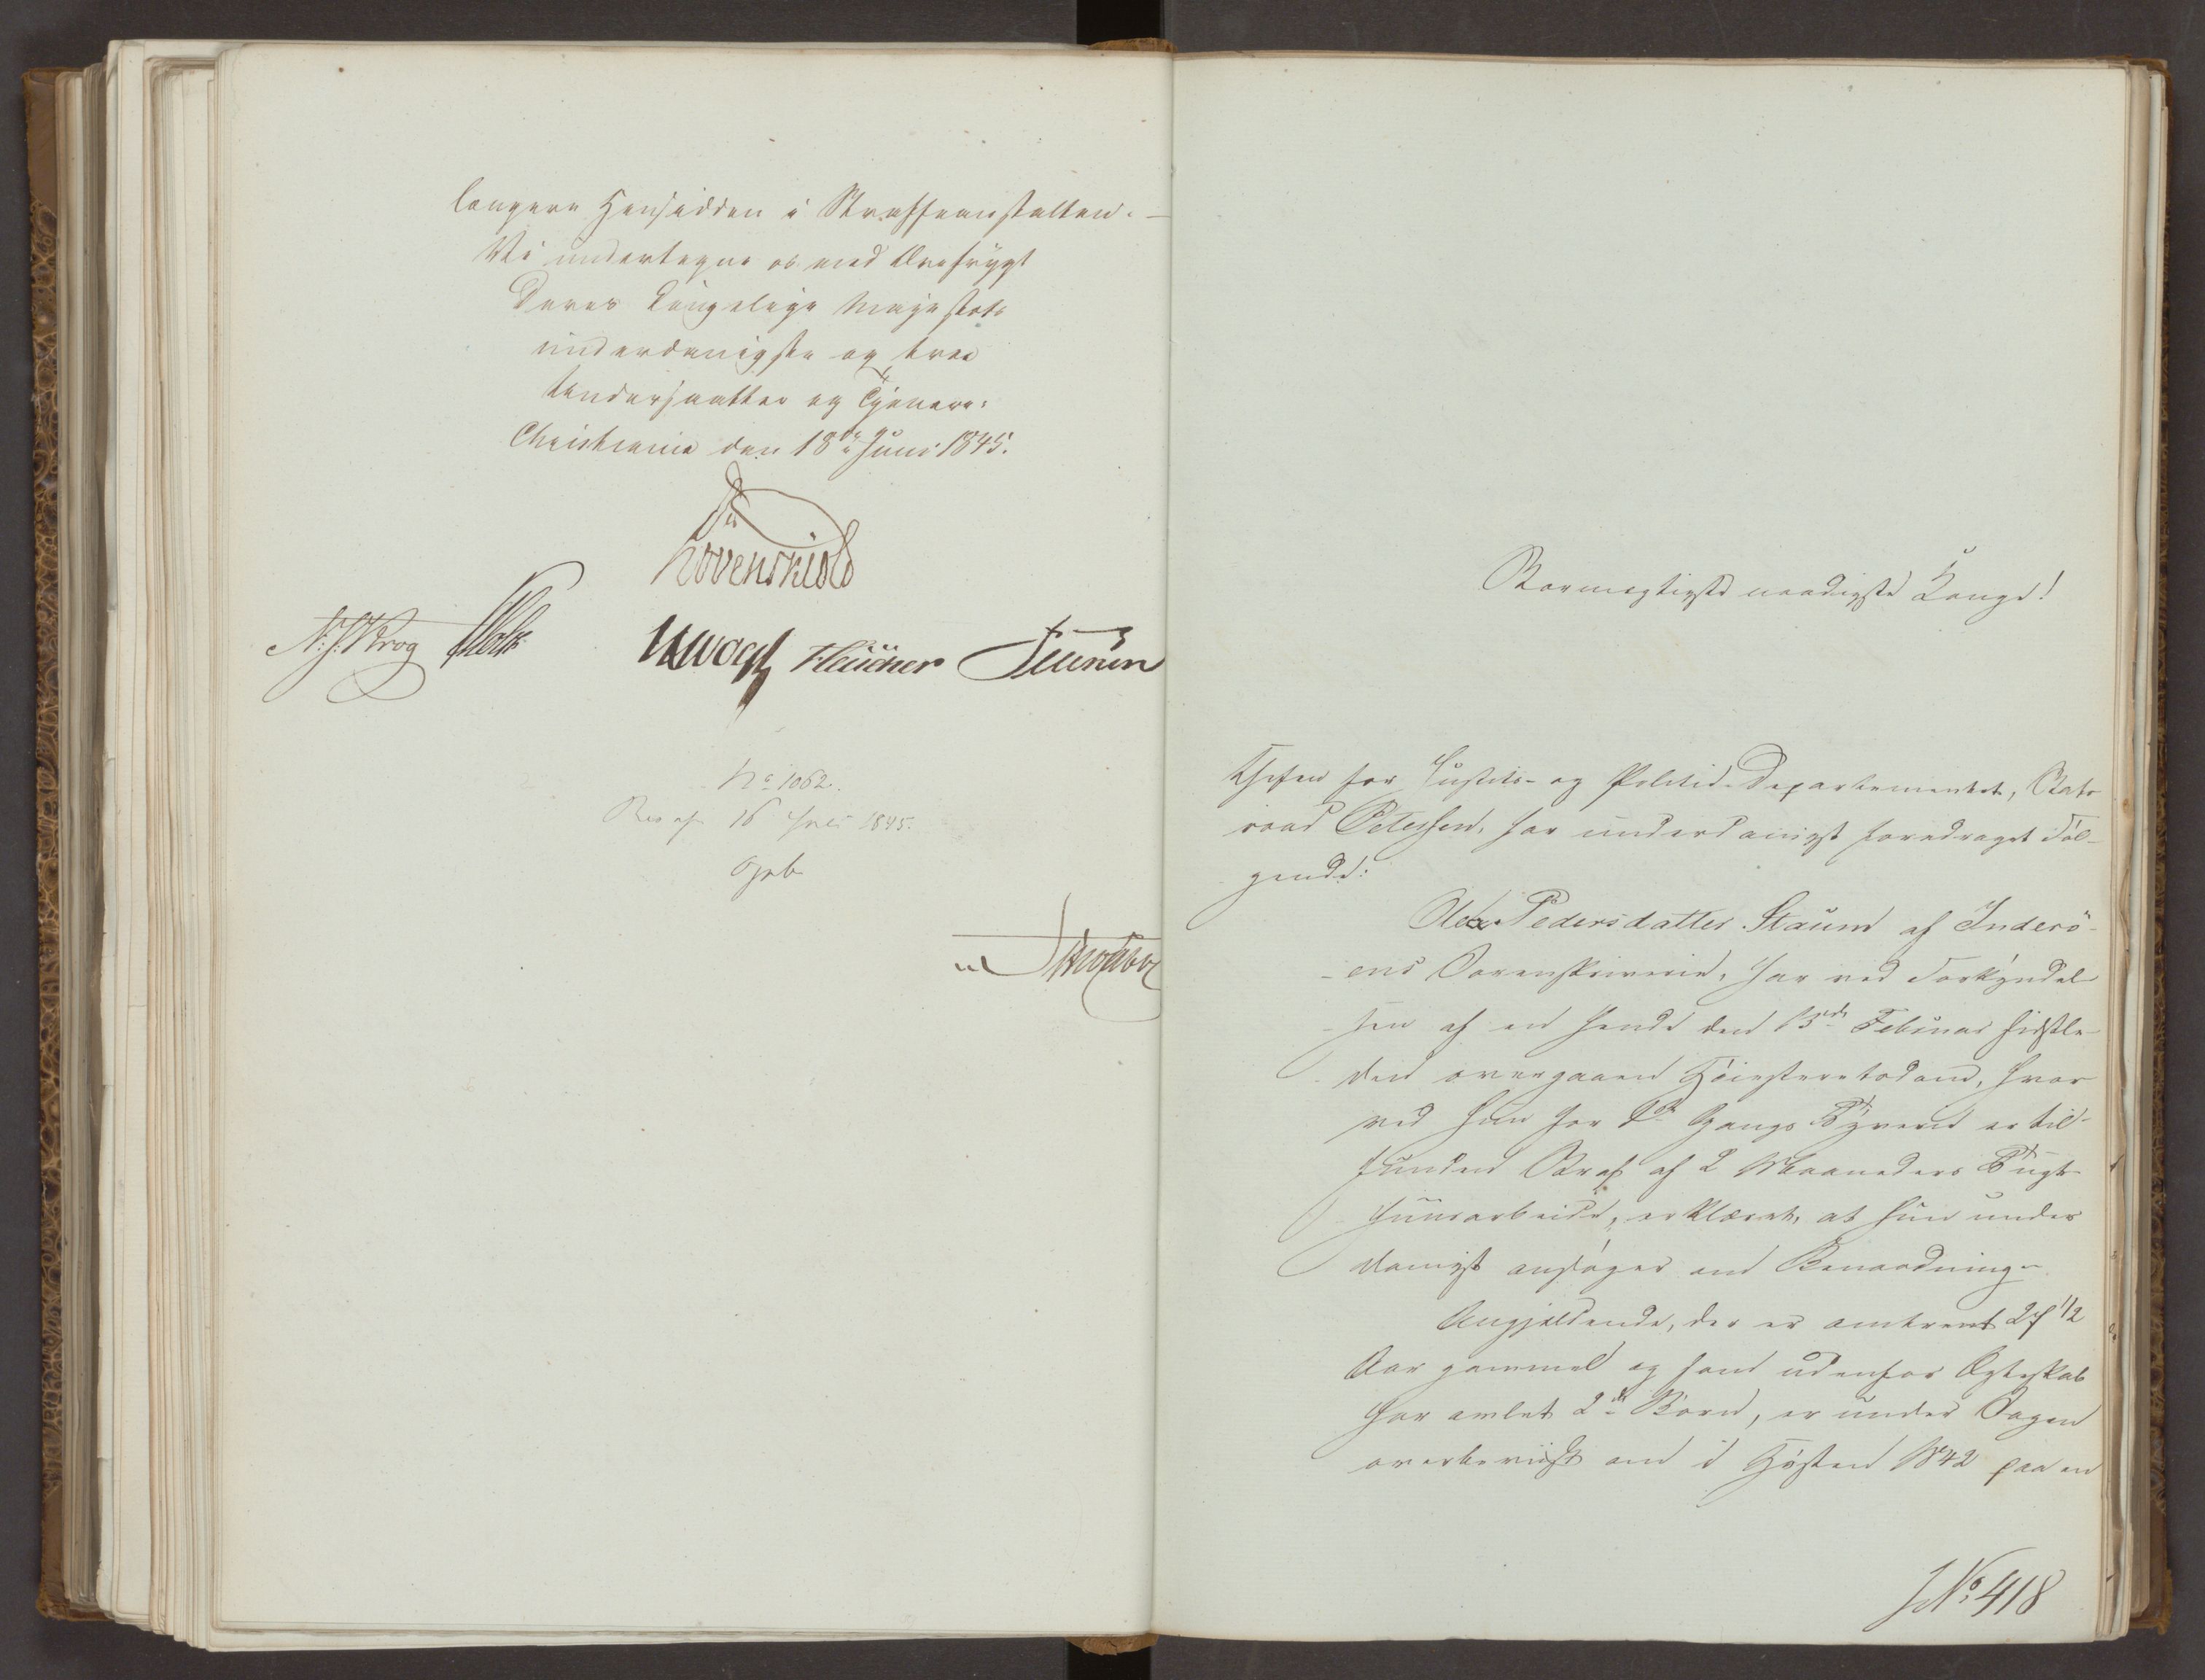 længere Hensidden i Straffeanstalten. —
Vi undertegne os med Ærefrygt
Deres Kongelige Majestæts
underdanigste og troe
Undersaatter og Tjenere:
Christiania den 18de Juni 1845.
Løvenskiold
N. J. Krog Holst
Vogt Fleischer
No 1062.
Res af 16 Juli 1845.
Stormægtigste naadigste Konge!
Chefen for Justits- og Politie-Departementet, Stats-
raad Petersen, har underdanigst foredraget Føl-
gende:
Olea Pedersdatter Staum af Inderø-
ens Sorenskriverie, har ved Forkyndel-
sen af en hende den 15de Februar sidstle-
den overgaaen Høiesteretsdom, hvor
ved hun for 1ste Gangs Tyverie er til-
funden Straf af 2 Maaneders Tugt-
huusarbeide, erklæret, at hun under
danigst ansøger om Benaadning.
Angjeldende, der er omtrent 27 1/2
Aar gammel og som udenfor Ægteskab
har avlet 2de Børn, er under Sagen
overbeviist om i Høsten 1842 paa en
JNo. 418